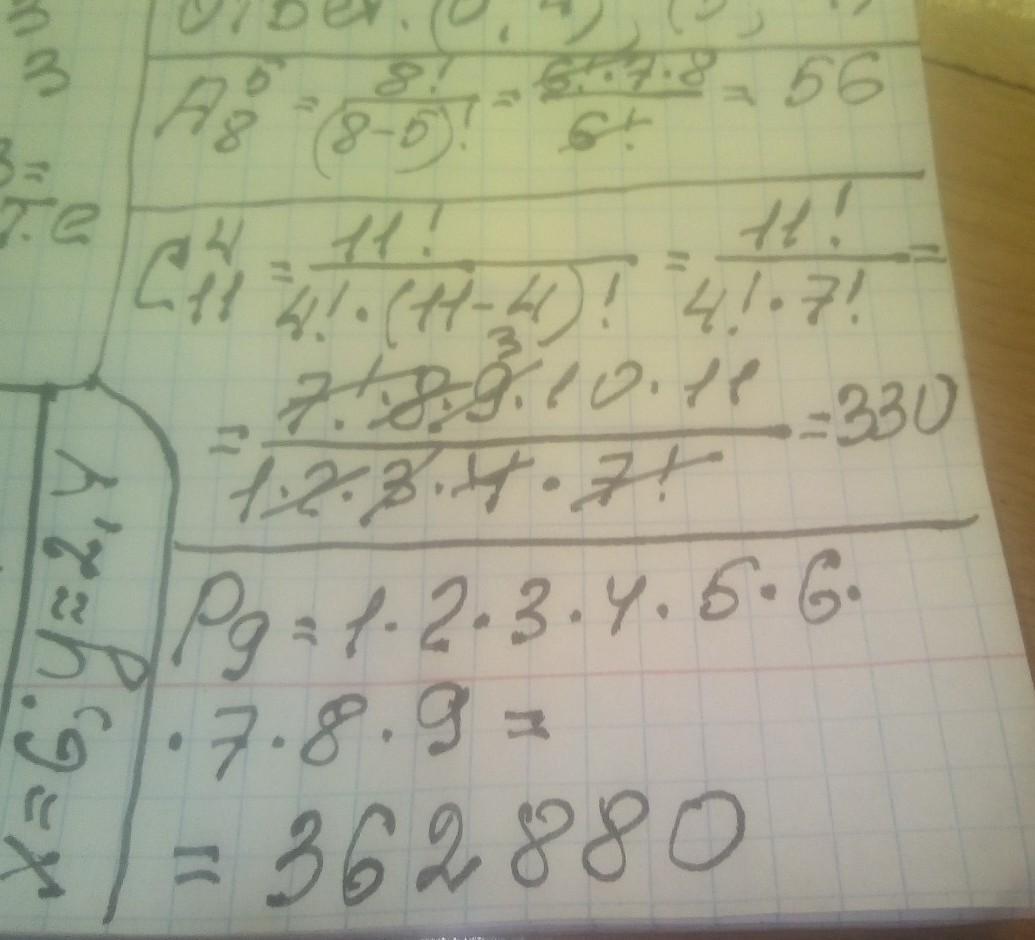 3
3
3=
т.е
Ответ. (0;
A₈⁵ = 8!/(8-5)! = 6!·7·8/6! = 56
C₁₁⁴ = 11!/4!·(11-4)! = 11!/4!·7! =
= 7!·8·9·10·11/1·2·3·4·7! = 330
3
P₉ = 1·2·3·4·5·6·
·7·8·9 =
= 362880
x=6; y=2,4